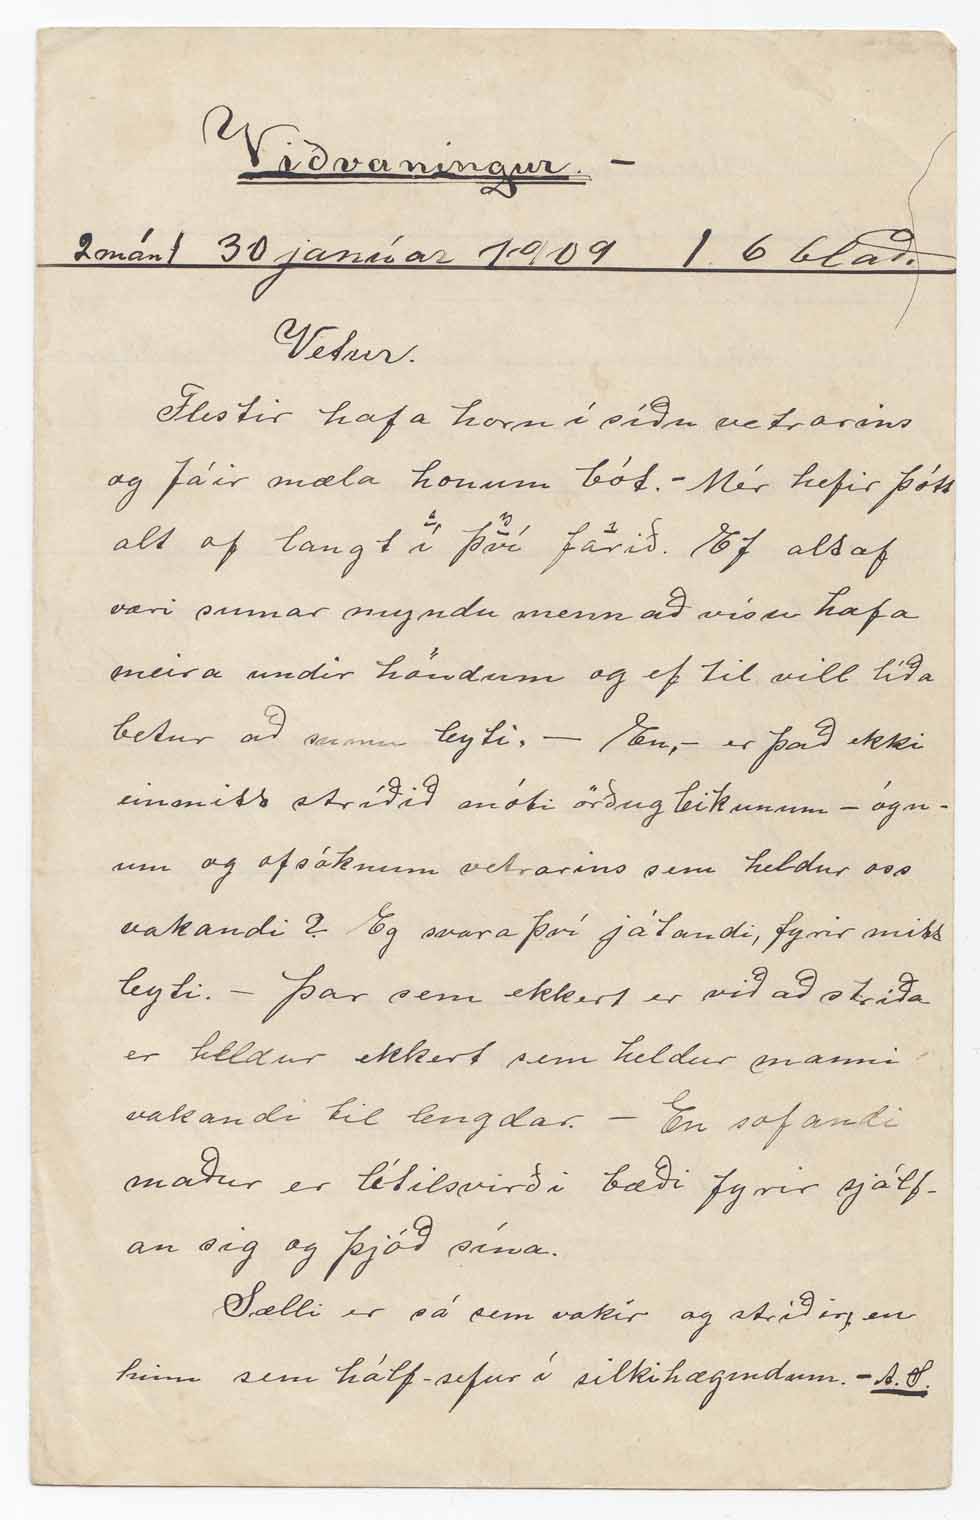 Viðvaningur. -
2 mán! 30 janúar 1909 1. 6 blað.
Vetur.
Flestir hafa horn í síðu vetrarins
og fáir mæla honum bót. - Mér hefir þótt
alt of langt í því farið. Ef altaf
væri sumar myndu menn að vísu hafa
meira undir höndum og ef til vill líða
betur að sumu leyti. - En, - er það ekki
einmitt stríðið móti örðugleikunum - ógn-
um og ofsóknum vetrarins sem heldur oss
vakandi? Eg svara því játandi, fyrir mitt
leyti. - Þar sem ekkert er við að stríða
er heldur ekkert sem heldur manni
vakandi til lengdar. - En sofandi
maður er lítilsvirði bæði fyrir sjálf-
an sig og þjóð sína.
Sælli er sá sem vakir og stríðir, en
hinn sem hálf-sefur í silkihægindum. - A. S.